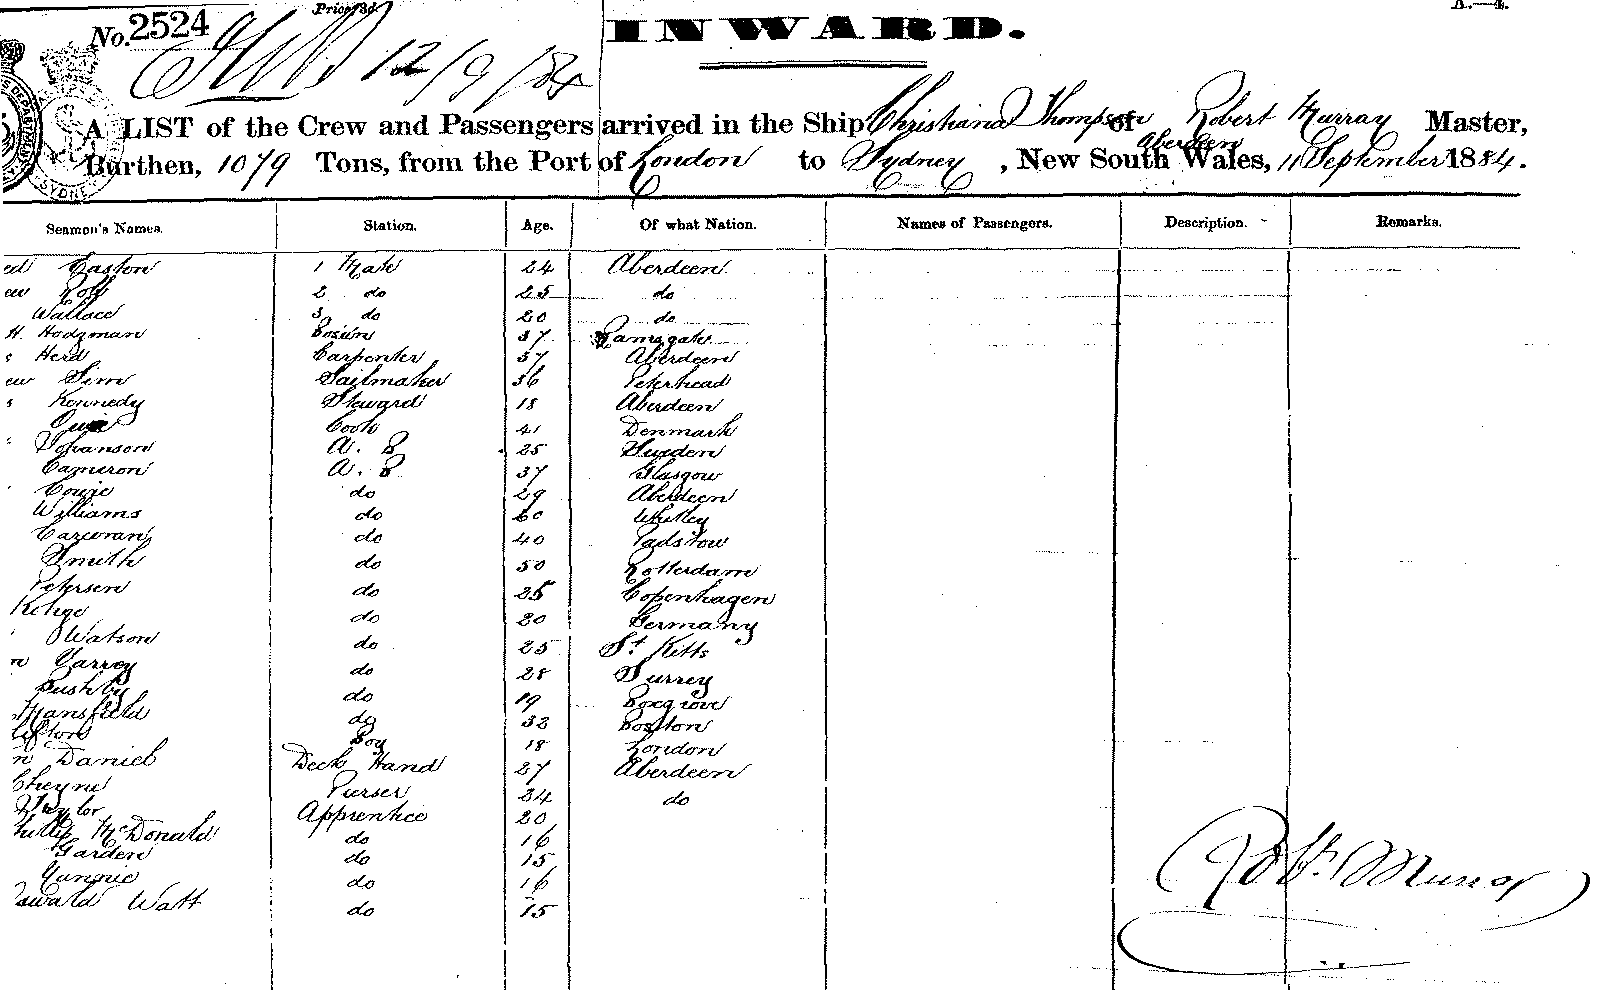 No. 2524
INWARD.
12/9/84
A LIST of the Crew and Passengers arrived in the Ship Christiana Thompson of Aberdeen Robert Murray Master,
Burthen, 1079 Tons, from the Port of London to Sydney, New South Wales, 11 September 1884.
Seamen's Names. Station. Age. Of what Nation. Names of Passengers. Description. Remarks.
ed Easton 1 Mate 24 Aberdeen
ew 2 do 25 do
Wallace 3 do 20 do
H. Hodgman Bosun 37 Ramsgate
s Herd Carpenter 37 Aberdeen
ew Sim Sailmaker 36 Peterhead
s Kennedy Steward 18 Aberdeen
Cook 41 Denmark
Johanson A. B 25 Sweden
Cameron A. B 37 Glasgow
Cowie do 29 Aberdeen
Williams do 60 Whitby
do 40 Padstow
Smith do 50 Rotterdam
Petersen do 25 Copenhagen
do 20 Germany
Watson do 25 St Kitts
n Varrey do 28 Surrey
Bushby do 19 Boxgrove
Mansfield do 32 Boston
lifton Boy 18 London
n Daniel Deck Hand 27 Aberdeen
Cheyne Purser 34 do
Taylor Apprentice 20
McDonald do 16
Garden do 15
do 16
dward Watt do 15
Robt. Murray